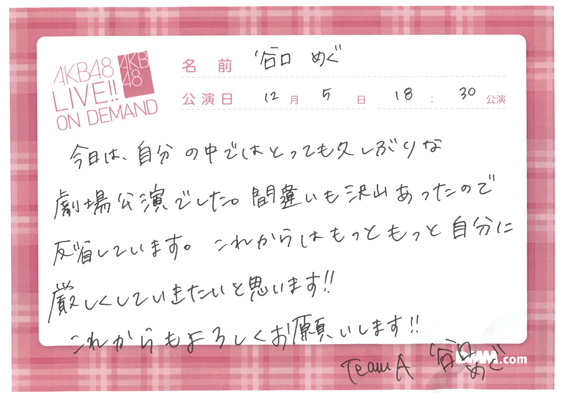 AKB48
LIVE!!
ON DEMAND
AKB
48
名前 谷口 めぐ
公演日 12月 5日 18:30公演
今日は、自分の中ではとっても久しぶりな
劇場公演でした。間違いも沢山あったので
反省しています。これからはもっともっと自分に
厳しくしていきたいと思います!!
これからもよろしくお願いします!!
TeamA 谷口
めぐ
.com